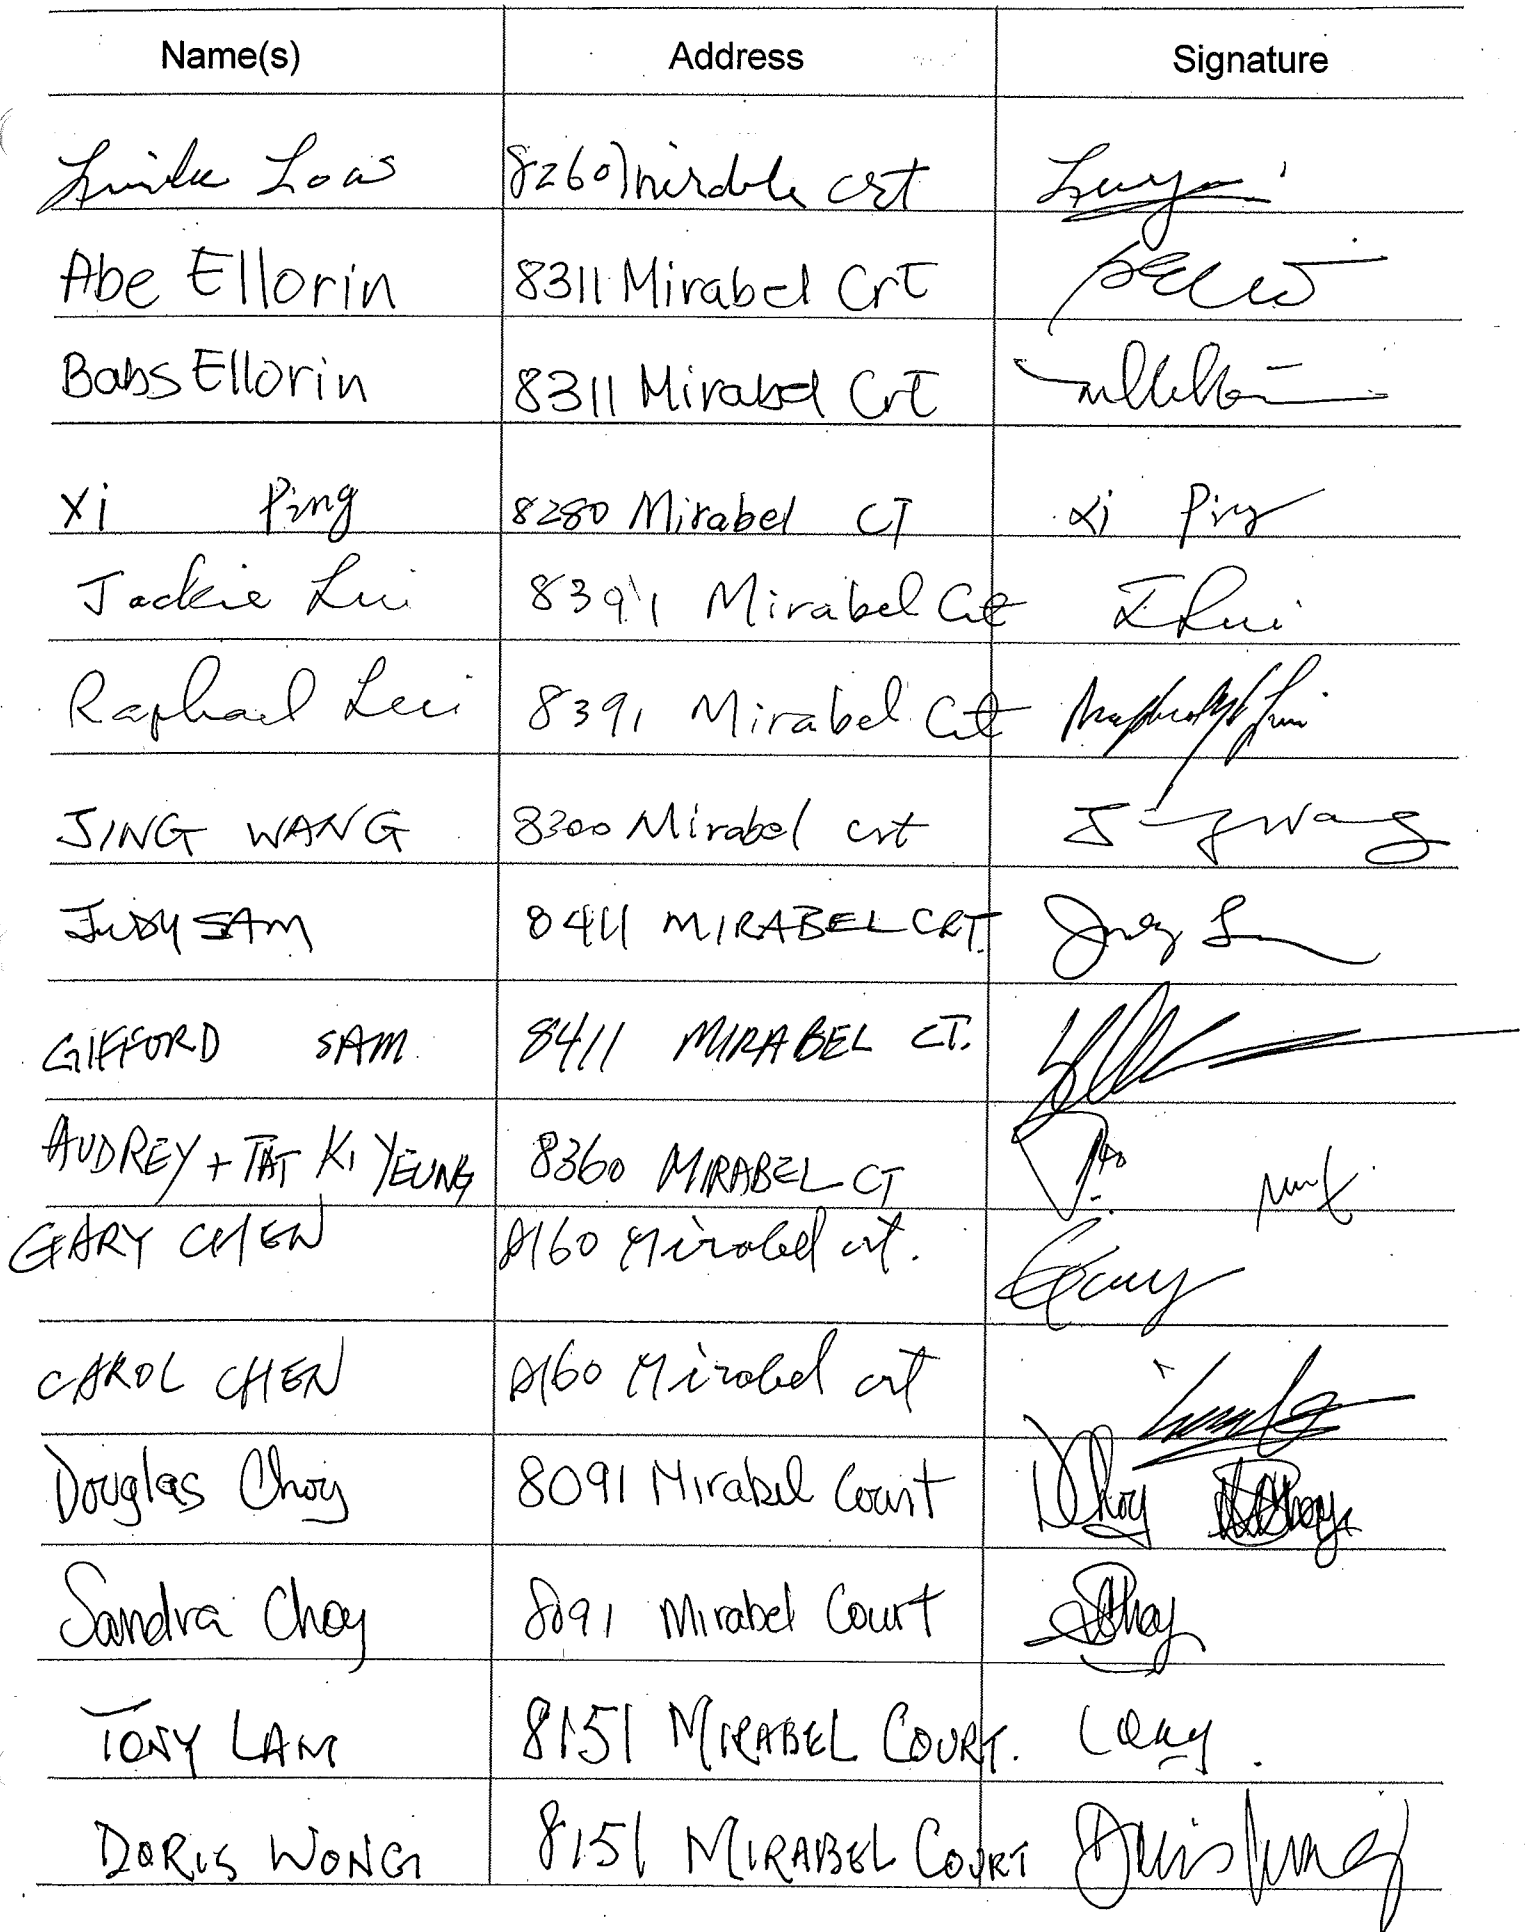 Name(s) Address Signature
8260 crt
Abe Ellorin 8311 Mirabel Crt
Babs Ellorin 8311 Mirabel Crt
Xi Ping 8280 Mirabel CT Xi Ping
Jackie Lui 8391 Mirabel Crt J Lui
Raphael Lui 8391 Mirabel Crt
JING WANG 8300 Mirabel crt Jing Wang
JUDY SAM 8411 MIRABEL CRT.
GIFFORD SAM 8411 MIRABEL CT.
AUDREY + TAT KI YEUNG 8360 MIRABEL CT
GARY CHEN 8160 Mirabel crt. Gary
CAROL CHEN 8160 Mirabel crt
Douglas Choy 8091 Mirabel Court DChoy
Sandra Choy 8091 Mirabel Court SChoy
TONY LAM 8151 MIRABEL COURT.
DORIS WONG 8151 MIRABEL COURT Doris Wong